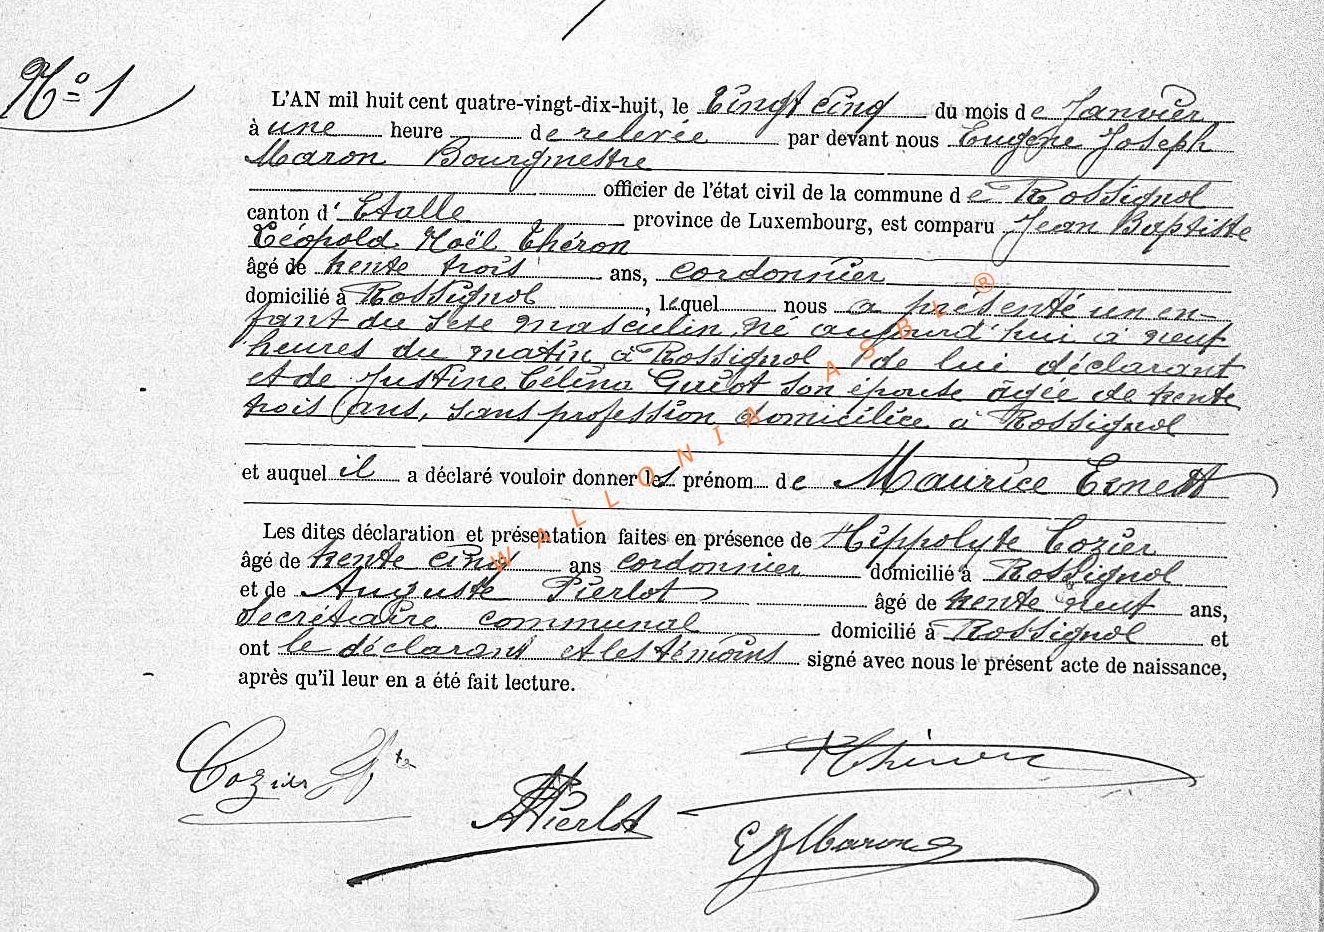 No 1
L'AN mil huit cent quatre-vingt-dix-huit, le Vingt cinq du mois de Janvier
à une heure de relevée par devant nous Eugène Joseph
Maron Bourgmestre
officier de l'état civil de la commune de Rossignol
canton d' Etalle province de Luxembourg, est comparu Jean Baptiste
Léopold Noël Théron
âgé de trente trois ans, cordonnier
domicilié à Rossignol, lequel nous a présenté un en-
fant du sexe masculin né aujourd'hui à neuf
heures du matin à Rossignol de lui déclarant
et de Justine Célina Guiot son épouse âgée de trente
trois ans, sans profession domiciliée à Rossignol
et auquel il a déclaré vouloir donner les prénom de Maurice Ernest
Les dites déclaration et présentation faites en présence de Hippolyte Cozier
âgé de trente cinq ans cordonnier domicilié à Rossignol
et de Auguste Pierlot âgé de trente neuf ans,
Secrétaire communal domicilié à Rossignol et
ont le déclarant et les témoins signé avec nous le présent acte de naissance,
après qu'il leur en a été fait lecture.
Cozier Hte
APierlot
Théron
E J Maron
WALLONIA ASBL ®